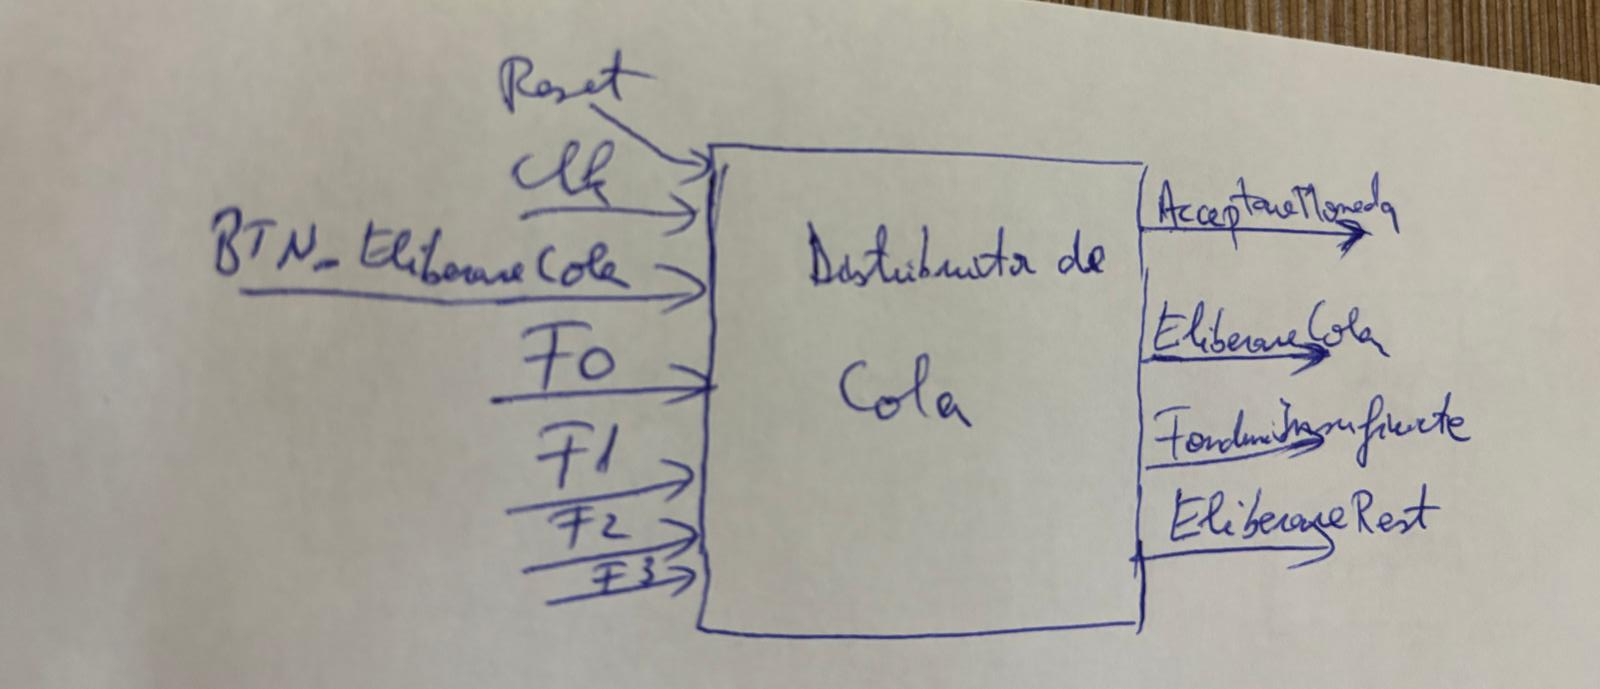 Reset
Clk
BTN_EliberareCola
F0
F1
F2
F3
Distribuitor de
Cola
AcceptareMoneda
EliberareCola
FonduriInsuficiente
EliberareRest